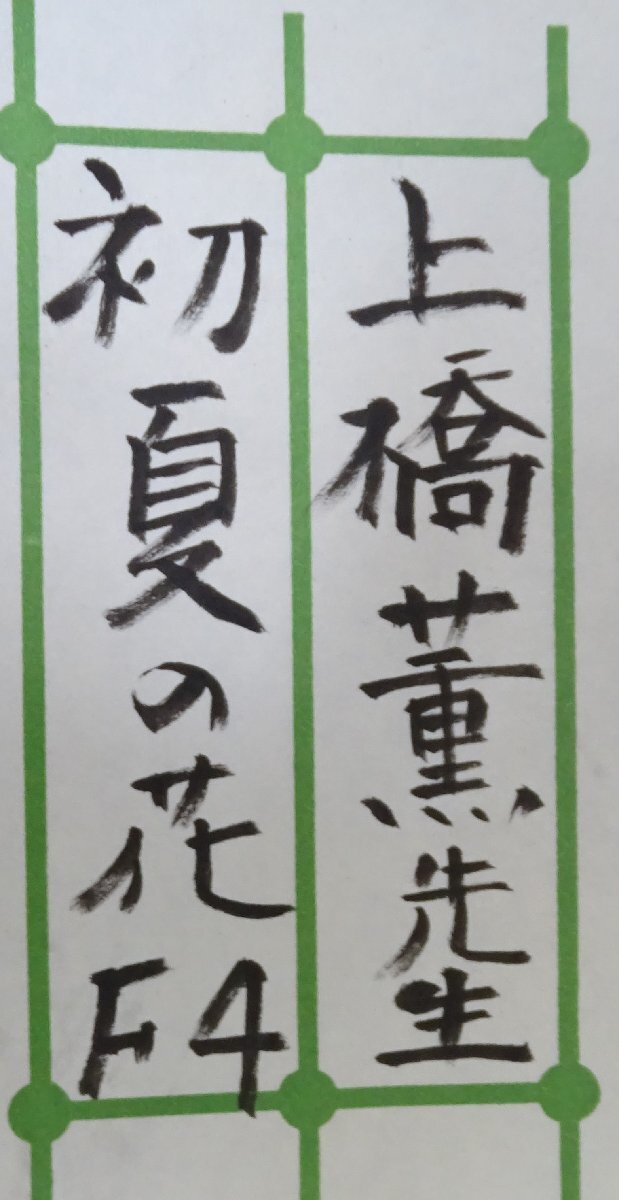 上橋薫先生
初夏の花 F4